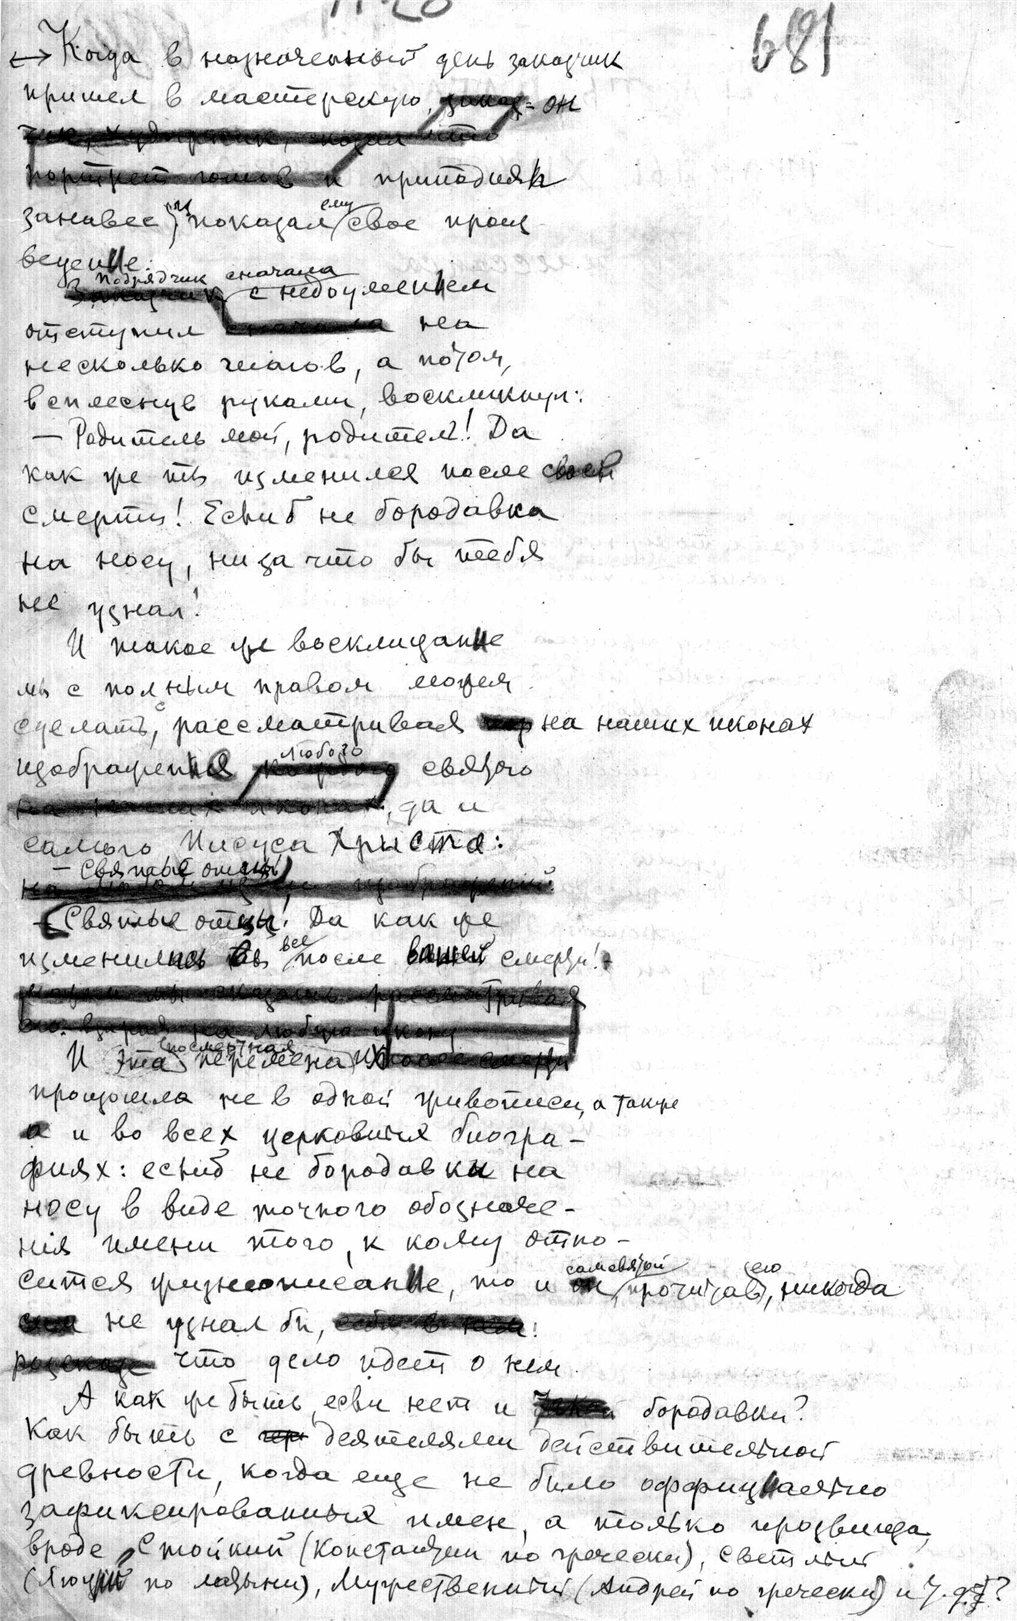 681
↔ Когда в назначенный день заказчик
пришел в мастерскую, он
приподняв
занавес, показал ему свое произ-
ведение.
Подрядчик сначала
с недоумением
отступил на
несколько шагов, а потом,
всплеснув руками, воскликнул:
— Родитель мой, родитель! Да
как же ты изменился после своей
смерти! Еслиб не бородавка
на носу, ни за что бы тебя
не узнал!
И такое же восклицание
мы с полным правом можем
сделать, рассматривая на наших иконах
изображения любого святого
, да и
самого Иисуса Христа:
— Святые отцы
— Святые отцы! Да как же
изменились вы все после вашей смерти!
И эта посмертная перемена
произошла не в одной живописи, а также
и во всех церковных биогра-
фиях: еслиб не бородавки на
носу в виде точного обозначе-
ния имени того, к кому отно-
сится жизнеописание, то и сам святой, прочитав его, никогда
не узнал бы,
что дело идет о нем.
А как же быть, если нет и бородавки?
Как быть с деятелями действительной
древности, когда еще не было оффициально
зафиксированных имен, а только прозвища,
вроде Стойкий (Константин по гречески), Светлый
(Люций по латыни), Мужественный (Андрей по гречески) и т. д.?